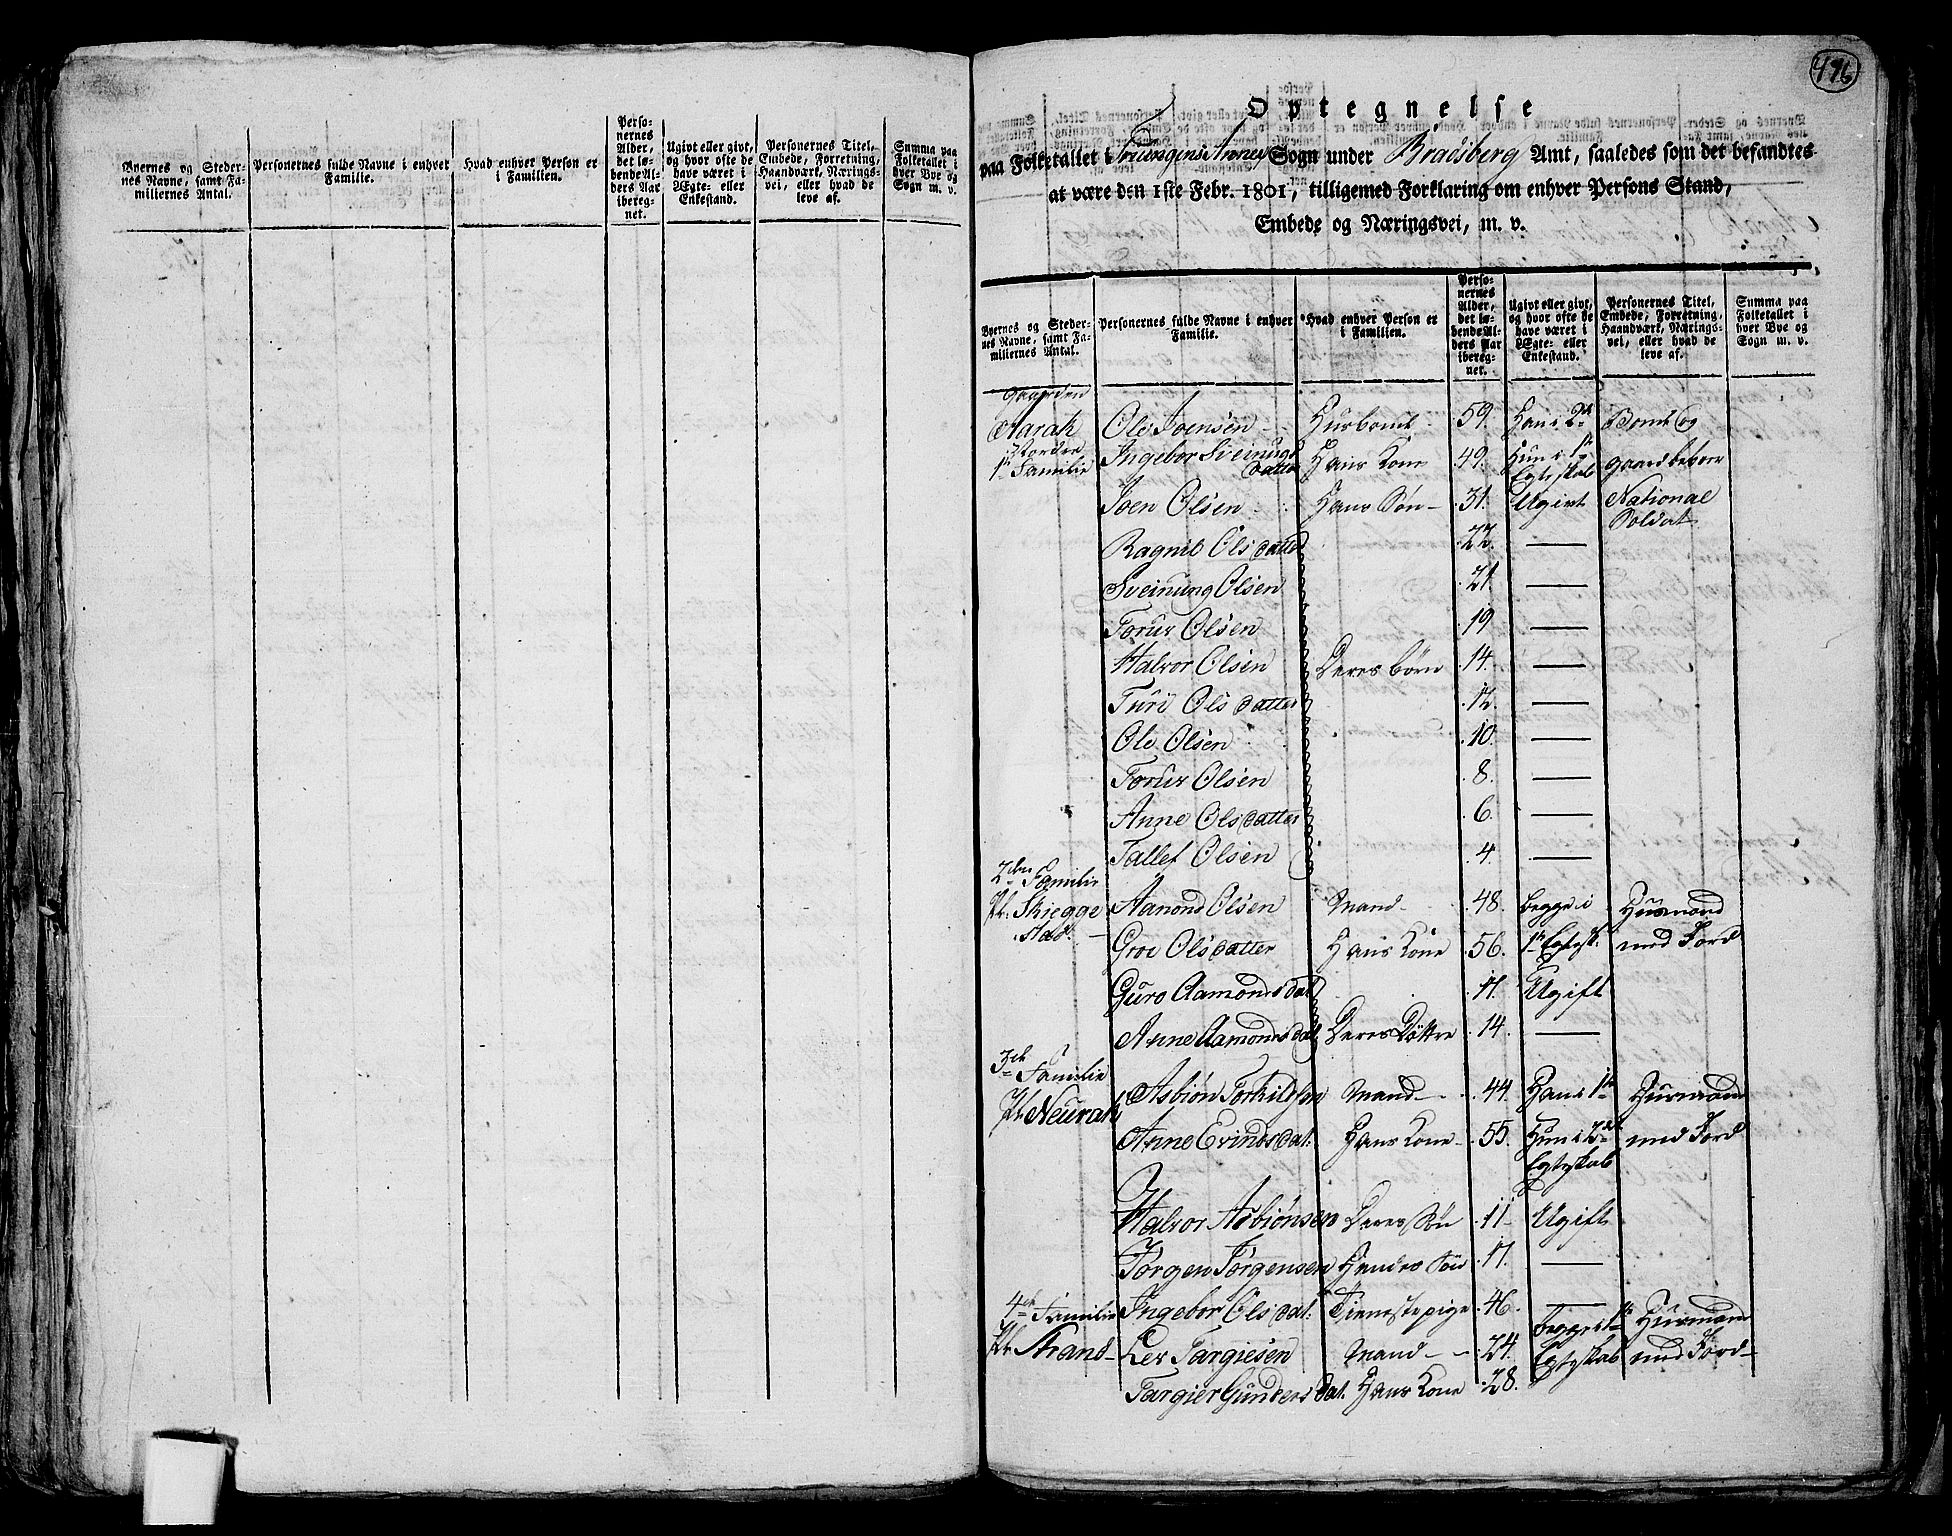 Byernes og Steder-
nes Navne, samt Fa-
miliernes Antal.
Personernes fulde Navne i enhver
Familie.
Hvad enhver Person er
i Familien.
Perso-
nernes
Alder,
det lø-
bende Al-
ders Aar
ibereg-
net.
Ugivt eller givt,
og hvor ofte de
have været i
Ægte- eller
Enkestand.
Personernes Titel,
Embede, Forretning,
Haandværk, Nærings-
vei, eller hvad de
leve af.
Summa paa
Folketallet i
hver Bye og
Sogn m. v.
476
Optegnelse
paa Folketallet i Annex Sogn under Bradsberg Amt, saaledes som det befandtes
at være den 1ste Febr. 1801, tilligemed Forklaring om enhver Persons Stand,
Embede og Næringsvei, m. v.
Byernes og Steder-
nes Navne, samt Fa-
miliernes Antal.
Personernes fulde Navne i enhver
Familie.
Hvad enhver Person er
i Familien.
Perso-
nernes
Alder,
det lø-
bende Al-
ders Aar
ibereg-
net.
Ugivt eller givt,
og hvor ofte de
have været i
Ægte- eller
Enkestand.
Personernes Titel,
Embede, Forretning,
Haandværk, Nærings-
vei, eller hvad de
leve af.
Summa paa
Folketallet i
hver Bye og
Sogn m. v.
Gaarden
Aarak Ole Joensen Husbond 59. Han i 2d Bonde og
Nordre
1ste Familie Ingebor Sveinungs datter Hans Kone 49. Hun i 1ste Egteskab gaardbeboer
Joen Olsen Hans Søn 31. Ugivt National Soldat
Ragnil Olsdatter 22. —
Sveinung Olsen 21. —
Torur Olsen 19 —
Halvor Olsen Deres børn 14. —
Turi Olsdatter 12. —
Ole Olsen 10. —
Torur Olsen 8. —
Anne Olsdatter 6. —
Tallef Olsen 4. —
2den Familie
Pl. Skiegge stad. Aamond Olsen Mand 48. begge i Huusmand
Groe Olsdatter Hans Kone 56. 1ste Egtesk. med Jord
Guro Aamonds dat. 17. Ugift
Anne Aamonds dat. Deres Døttre 14. —
3de Familie
Pl. Neurak Asbiøn Torkildsen Mand 44. Han i 1ste Huusmand
Anne Evinds dat. Hans Kone 55. Hun i 2d Egteskab med Jord
Halvor Asbiønsen Deres Søn 11 Ugift
Jørgen Jørgensen Hendes Søn 17. —
4de Familie Ingebor Ols dat. Tienestepige 46. —
Pl. Strand Ler Targiesen Mand 24. begge i 1ste Egteskab Huusmand med Jord
Targier Gunders dat. Hans Kone 28.